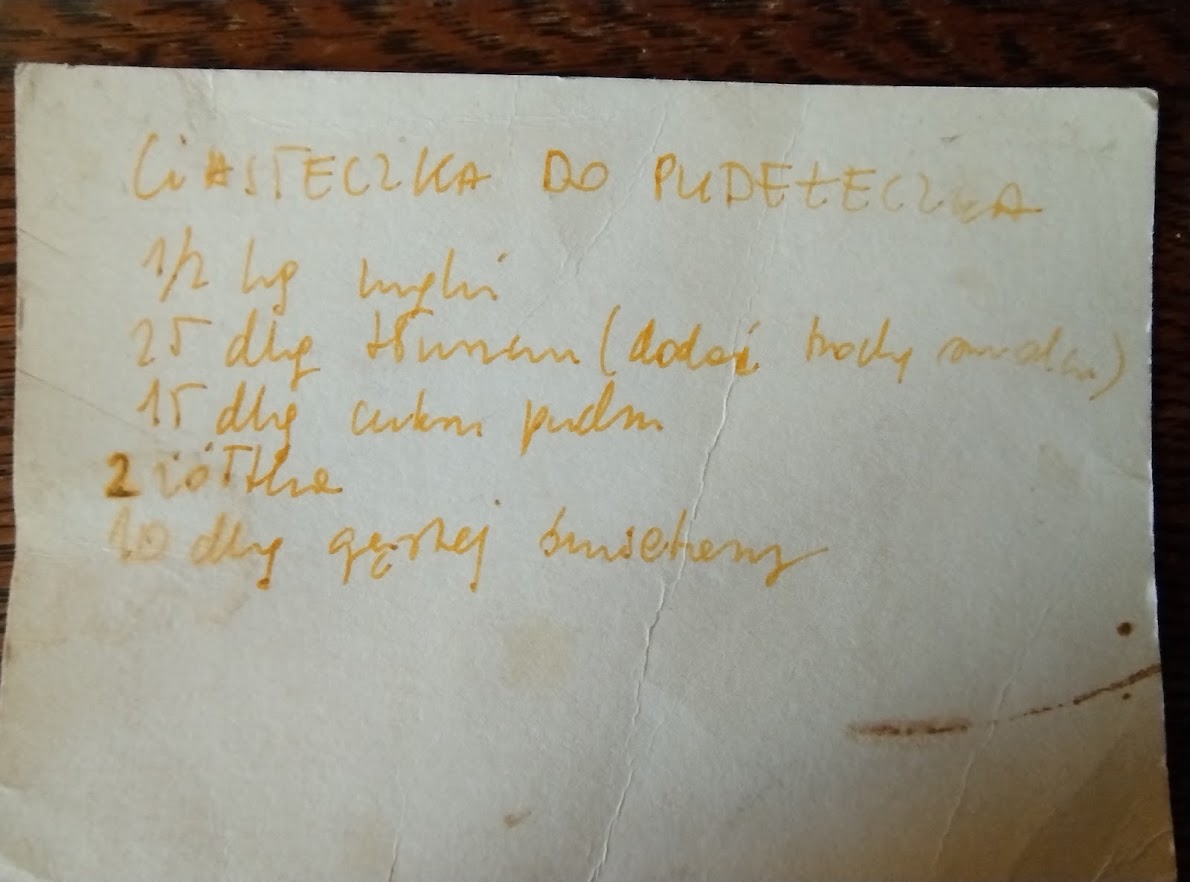 CiASTECZKA DO PUDEŁECZKA
1/2 kg mąki
25 dkg tłuszczu (dodać trochę smalcu)
15 dkg cukru pudru
2 żółtka
10 dkg gęstej śmietany